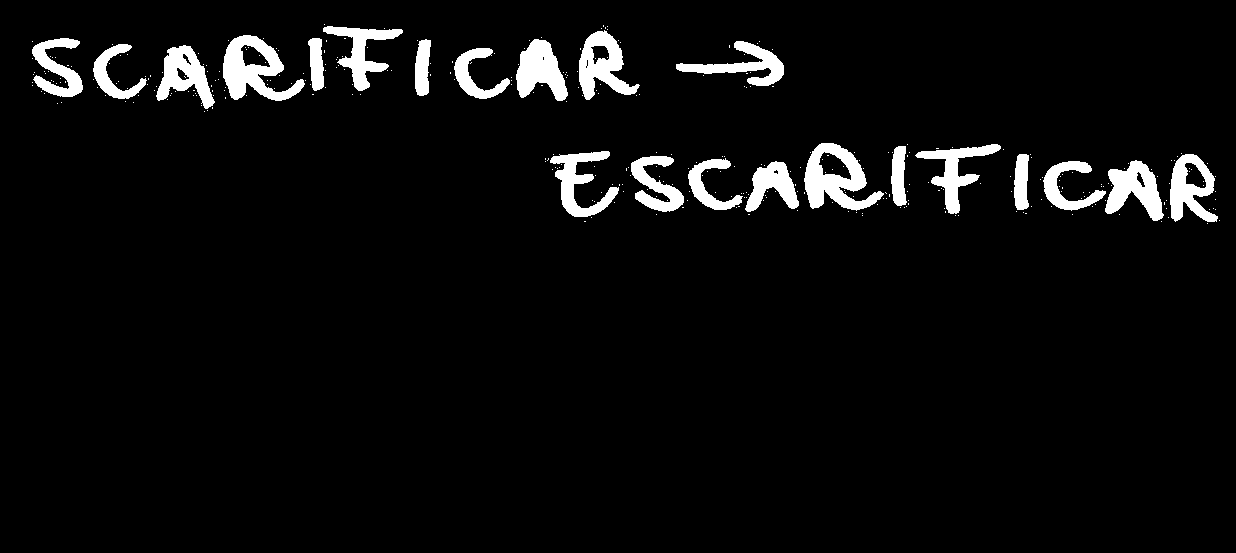 SCARIFICAR →
ESCARIFICAR